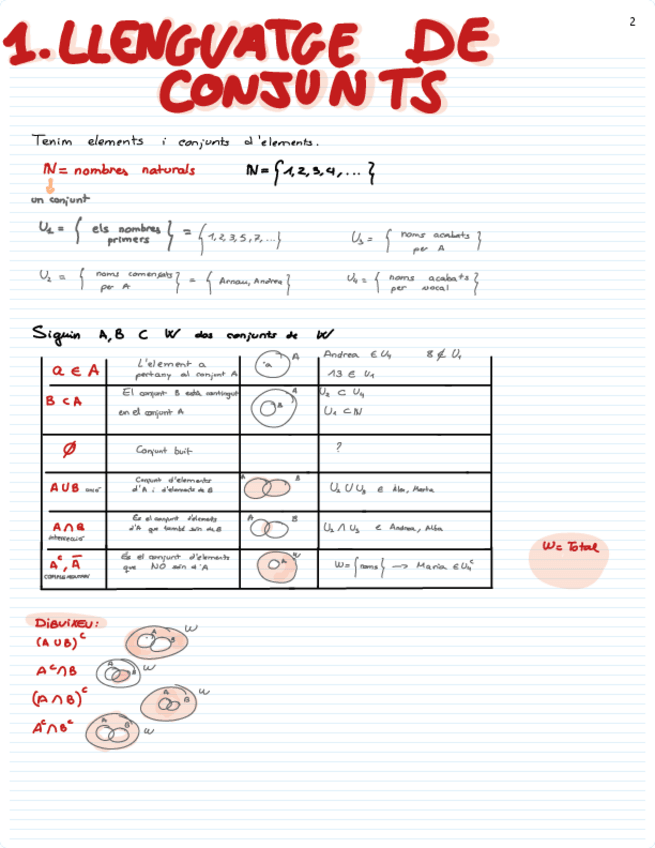 2
1. LLENGUATGE DE
CONJUNTS
Tenim elements i conjunts d'elements.
ℕ = nombres naturals ℕ = {1, 2, 3, 4, ...}
un conjunt
U₁ = {els nombres primers} = {1, 2, 3, 5, 7, ...} U₃ = {noms acabats per A}
U₂ = {noms començats per A} = {Arnau, Andrea} U₄ = {noms acabats per vocal}
Siguin A, B C W dos conjunts de W
a ∈ A L'element a pertany al conjunt A a A Andrea ∈ U₄ 8 ∉ U₁
13 ∈ U₁
B ⊂ A El conjunt B està contingut en el conjunt A B A U₂ ⊂ U₄
U₁ ⊂ ℕ
∅ Conjunt buit ?
A ∪ B unió Conjunt d'elements d'A i d'elements de B A B U₂ ∪ U₃ ∈ Marta
A ∩ B intersecció És el conjunt d'elements d'A que també són de B A B U₂ ∩ U₃ ∈ Andrea, Alba
Aᶜ, Ā COMPLEMENTARI És el conjunt d'elements que NO són d'A A W W = {noms} → Maria ∈ U₄ᶜ
W = Total
DIBUIXEU:
(A ∪ B)ᶜ A B W
Aᶜ ∩ B A B W
(A ∩ B)ᶜ A B W
Aᶜ ∩ Bᶜ A B W